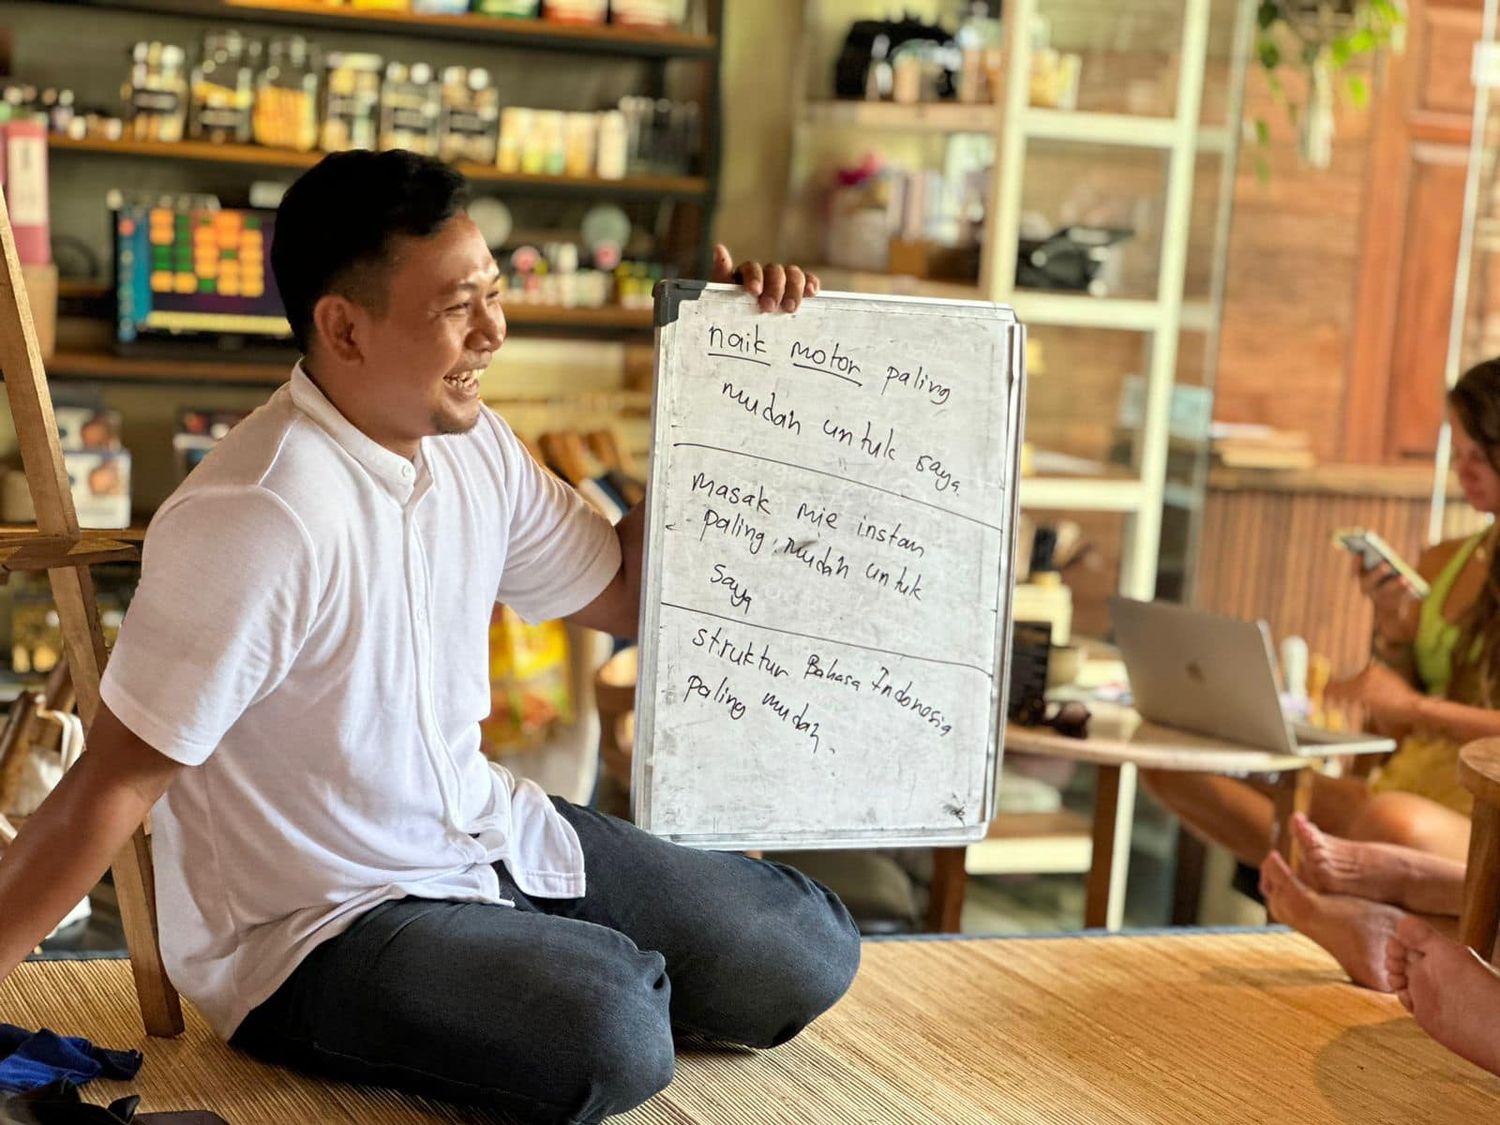 naik motor paling
mudah untuk saya.
masak mie instan
paling mudah untuk
saya
struktur Bahasa Indonesia
paling mudah.